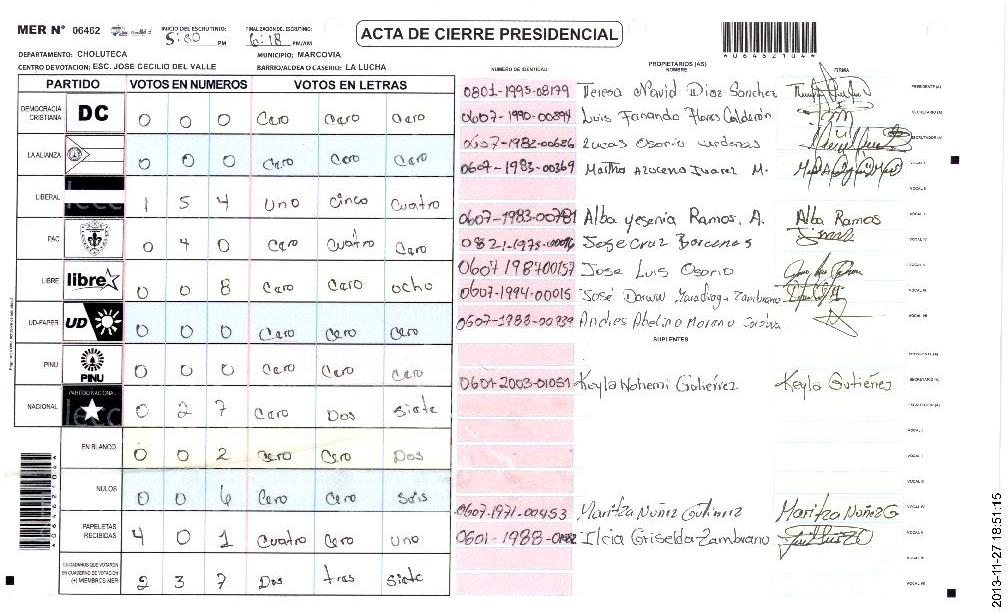 MER N° 06462 INICIO DEL ESCRUTINIO: 5:00 PM FINALIZACION DEL ESCRUTINIO: 6:18 PM/AM
ACTA DE CIERRE PRESIDENCIAL
*06462104*
DEPARTAMENTO: CHOLUTECA MUNICIPIO: MARCOVIA
CENTRO DE VOTACION: ESC. JOSE CECILIO DEL VALLE BARRIO/ALDEA O CASERIO: LA LUCHA
PARTIDO VOTOS EN NUMEROS VOTOS EN LETRAS
DEMOCRACIA CRISTIANA DC 0 0 0 Cero Cero Cero
LA ALIANZA 0 0 0 Cero Cero Cero
LIBERAL 1 5 4 Uno Cinco Cuatro
PAC 0 4 0 Cero Cuatro Cero
LIBRE libre 0 0 8 Cero Cero ocho
UD-FAPER UD 0 0 0 Cero Cero Cero
PINU PINU 0 0 0 Cero Cero Cero
NACIONAL PARTIDO NACIONAL 0 2 7 Cero Dos Siete
EN BLANCO 0 0 2 Cero Cero Dos
NULOS 0 0 6 Cero Cero Seis
PAPELETAS RECIBIDAS 4 0 1 Cuatro Cero Uno
CIUDADANOS QUE VOTARON EN CUADERNO DE VOTACION (+) MIEMBROS MER 2 3 7 Dos tres Siete
NUMERO DE IDENTIDAD PROPIETARIOS (AS) NOMBRE FIRMA
0801-1993-08179 Teresa Navid Diaz Sanchez PRESIDENTE (A)
0607-1990-00894 Luis Fernando Flores Calderón SECRETARIO (A)
0607-1982-00686 Lucas Osorio Cardenas ESCRUTADOR (A)
0607-1983-00369 Martha Azucena Juarez M. VOCAL I
0607-1983-00781 Alba yesenia Ramos. A. Alba Ramos VOCAL II
Jose Cruz Barcenas VOCAL IV
0607 1984 00157 Jose Luis Osorio VOCAL V
0607-1994-00015 José Darwin Zambrano VOCAL VI
0607-1988-00939 Andres Abelino Moreno VOCAL VII
SUPLENTES
PRESIDENTE (A)
0601-2003-01051 Keyla Nohemi Gutiérrez Keyla Gutiérrez SECRETARIO (A)
ESCRUTADOR (A)
VOCAL I
VOCAL II
VOCAL III
0607-1971-00453 Maritza Nuñez Gutierrez Maritza Nuñez G VOCAL IV
Ilcia Griselda Zambrano VOCAL V
VOCAL VI
VOCAL VII
*06462104*
2013-11-27 18:51:15